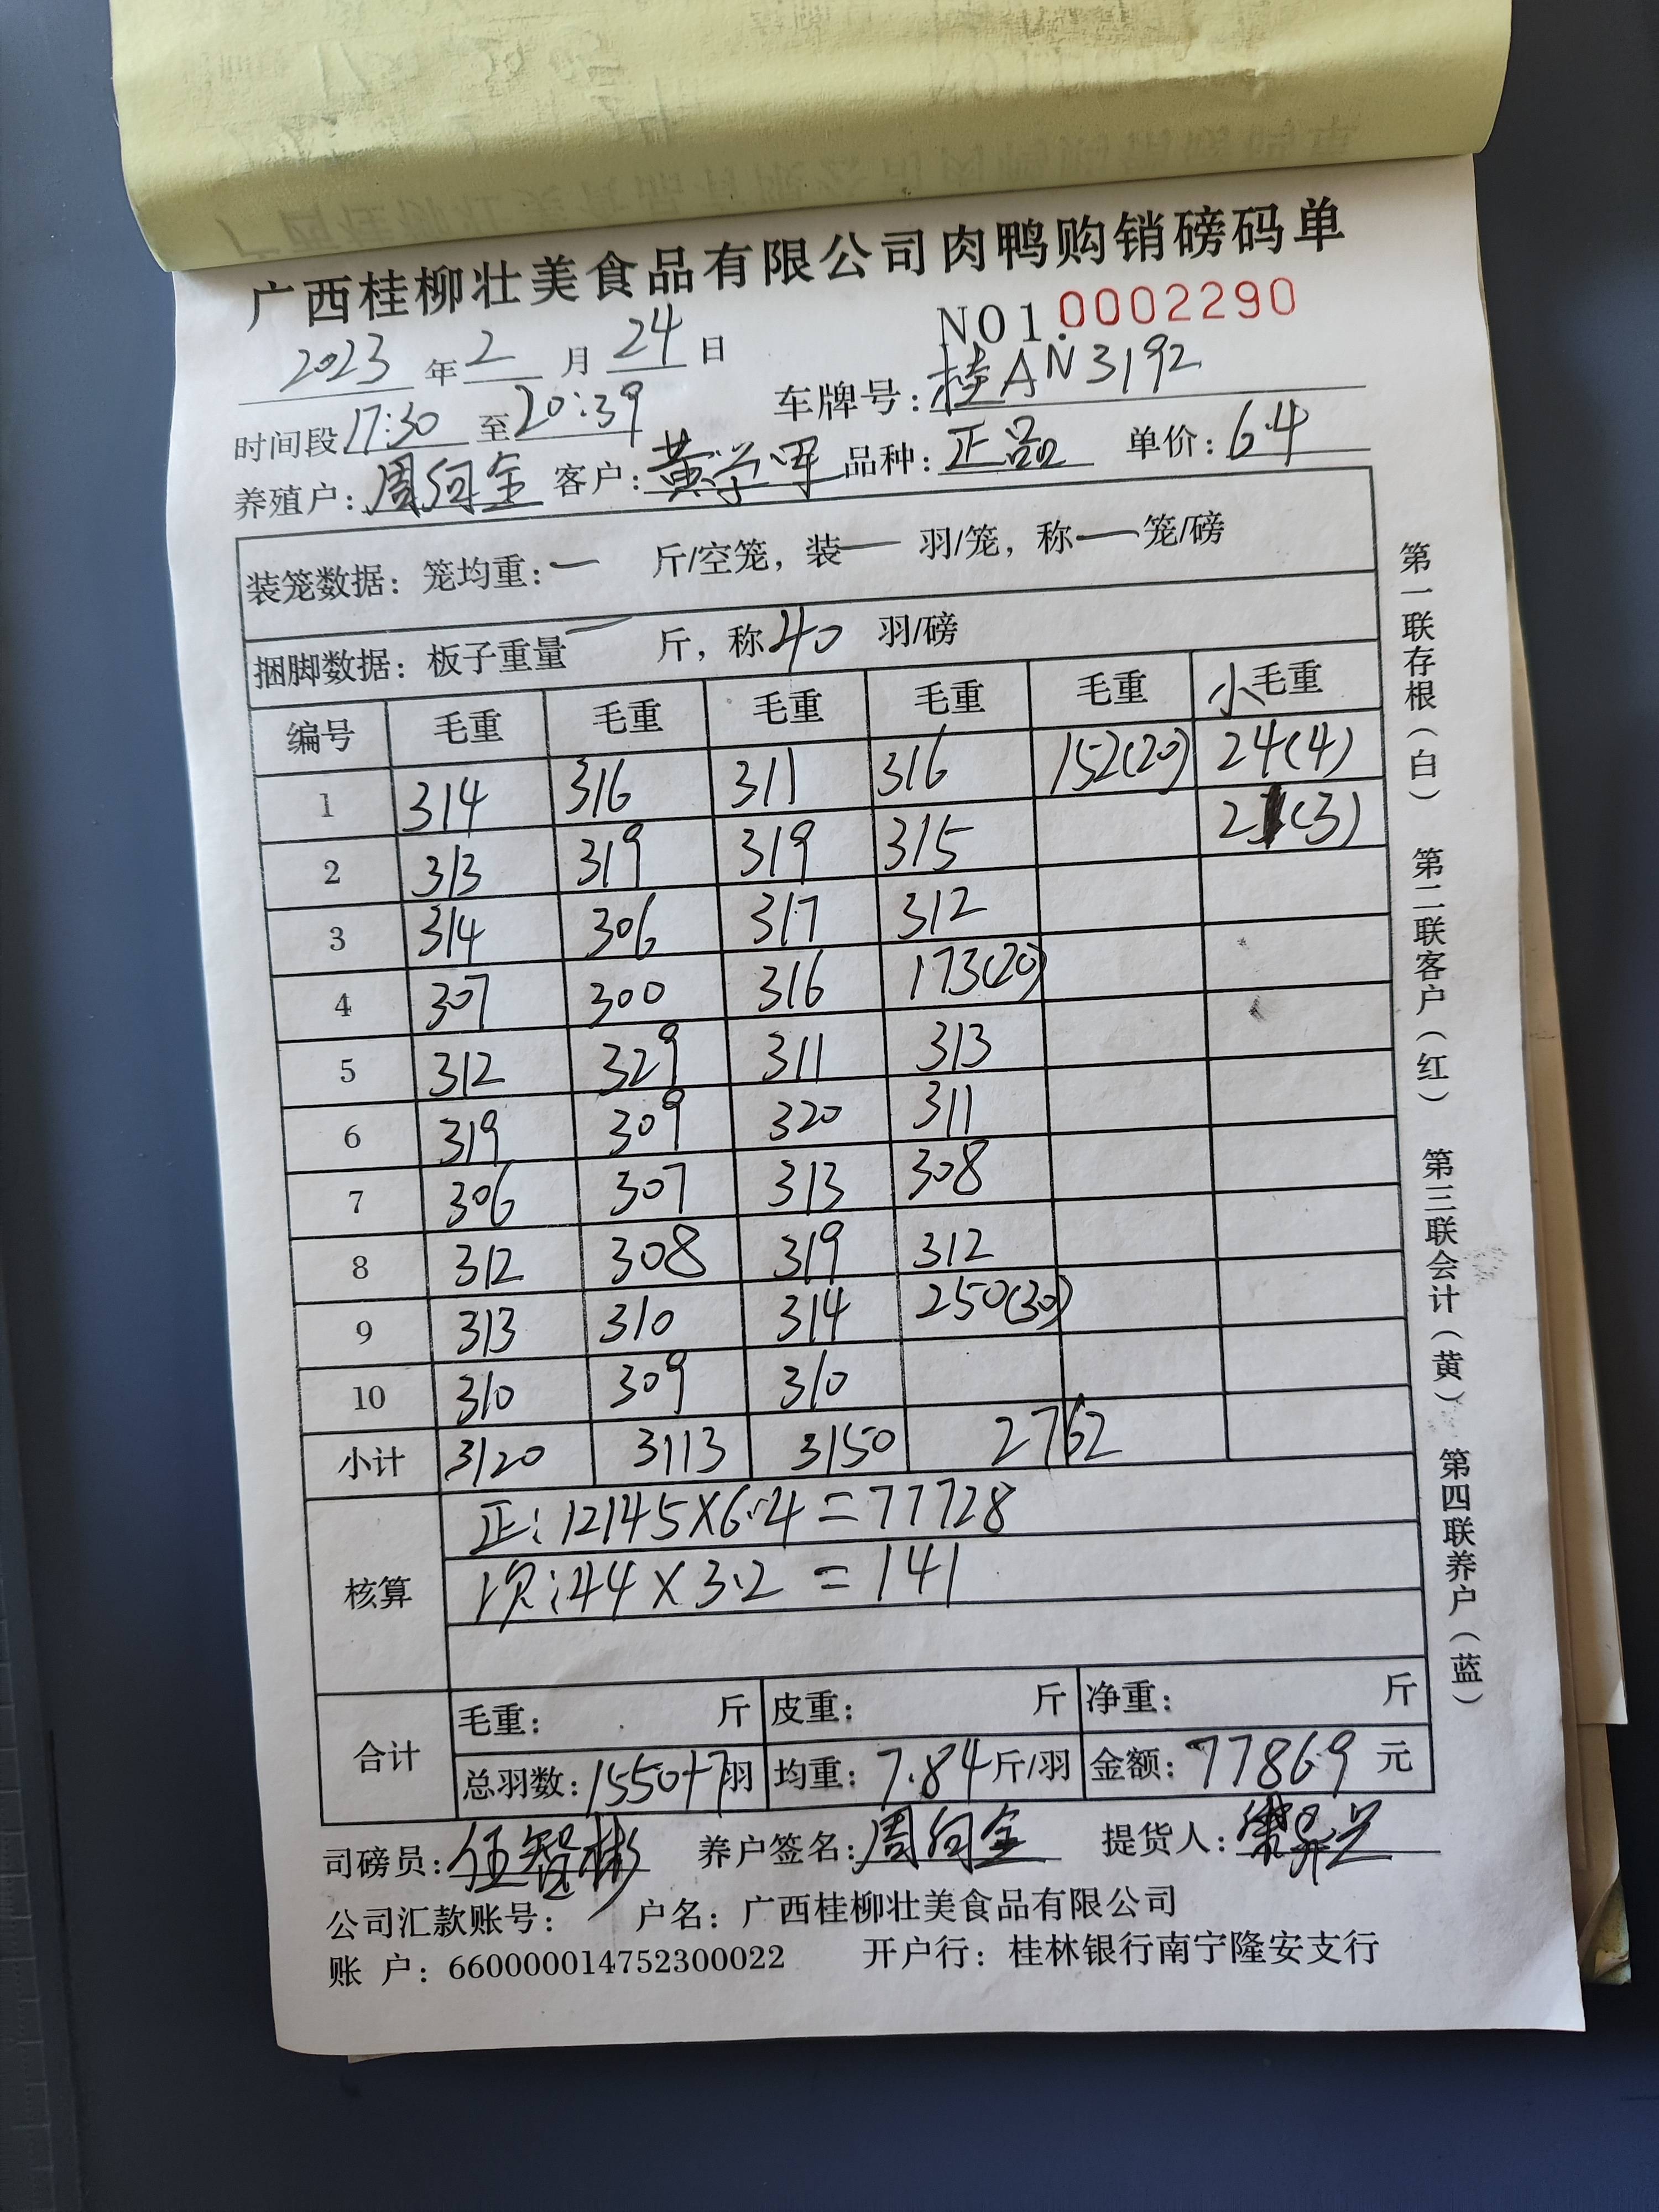 广西桂柳壮美食品有限公司肉鸭购销磅码单
NO1.0002290
2023年2月24日
车牌号:桂AN3192
时间段17:30至20:39
养殖户:周何全 客户:黄学军 品种:正品 单价:6.4
装笼数据:笼均重:一 斤/空笼,装一 羽/笼,称一笼/磅
捆脚数据:板子重量一 斤,称40 羽/磅
编号 毛重 毛重 毛重 毛重 毛重 小毛重
1 314 316 311 316 152(20) 24(4)
2 313 319 319 315 21(3)
3 314 306 317 312
4 307 300 316 173(20)
5 312 329 311 313
6 319 309 320 311
7 306 307 313 308
8 312 308 319 312
9 313 310 314 250(30)
10 310 309 310
小计 3120 3113 3150 2762
核算 正:12145×6.4=77728
次:44×3.2=141
合计 毛重: 斤 皮重: 斤 净重: 斤
总羽数:1550+7羽 均重:7.84斤/羽 金额:77869元
司磅员:伍智彬 养户签名:周何全 提货人:
公司汇款账号: 户名:广西桂柳壮美食品有限公司
账 户:660000014752300022 开户行:桂林银行南宁隆安支行
第一联存根(白) 第二联客户(红) 第三联会计(黄) 第四联养户(蓝)